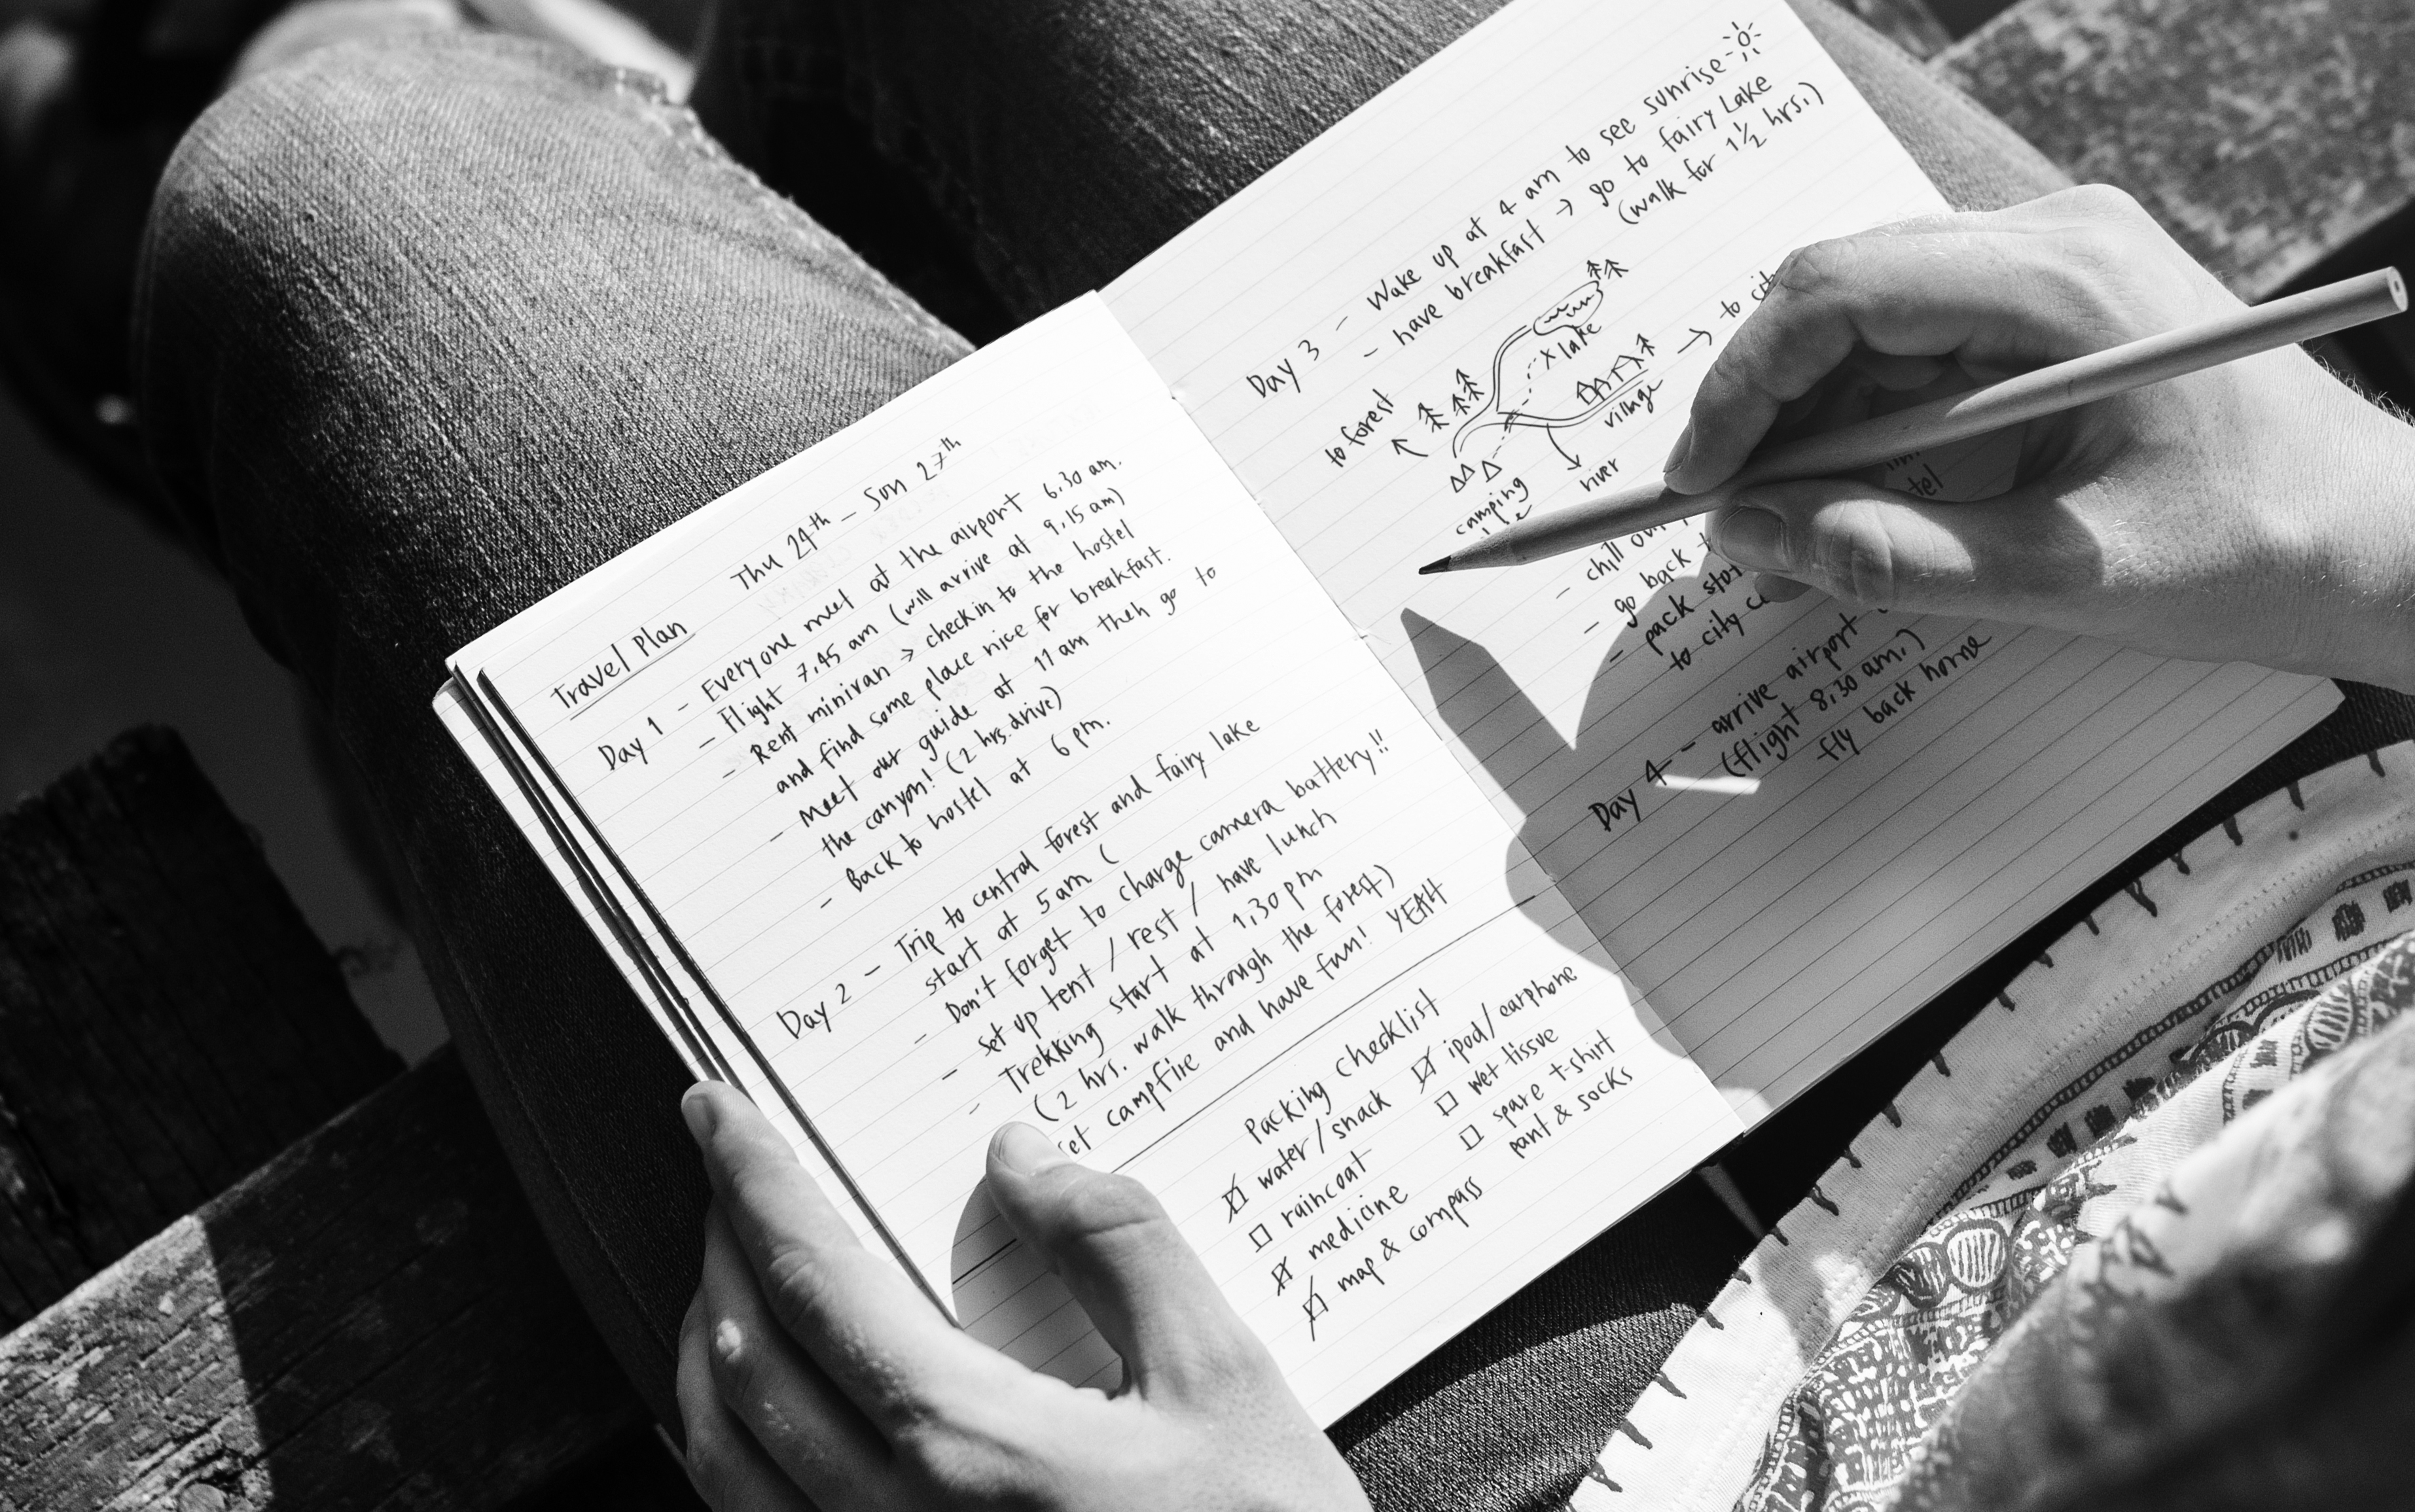 Travel Plan
Thu 24th - Sun 27th
Day 1 - Everyone meet at the airport 6.30 am.
- Flight 7.45 am (will arrive at 9.15 am)
- Rent minivan → check in to the hostel
and find some place nice for breakfast.
- Meet our guide at 11 am then go to
the canyon! (2 hrs. drive)
- Back to hostel at 6 pm.
Day 2 - Trip to central forest and fairy lake
start at 5 am (
- Don't forget to charge camera battery!!
- Set up tent / rest / have lunch
- Trekking start at 1.30 pm
(2 hrs. walk through the forest)
campfire and have fun! YEAH
Packing checklist
water / snack
raincoat
medicine
map & compass
ipod / earphone
wet tissue
spare t-shirt
pant & socks
Day 3 - Wake up at 4 am to see sunrise
- have breakfast → go to fairy Lake
(walk for 1 1/2 hrs.)
to forest
lake
→ to
village
river
camping
- chill
- go back
- pack
to city
Day 4 - arrive airport
(flight 8.30 am.)
fly back home